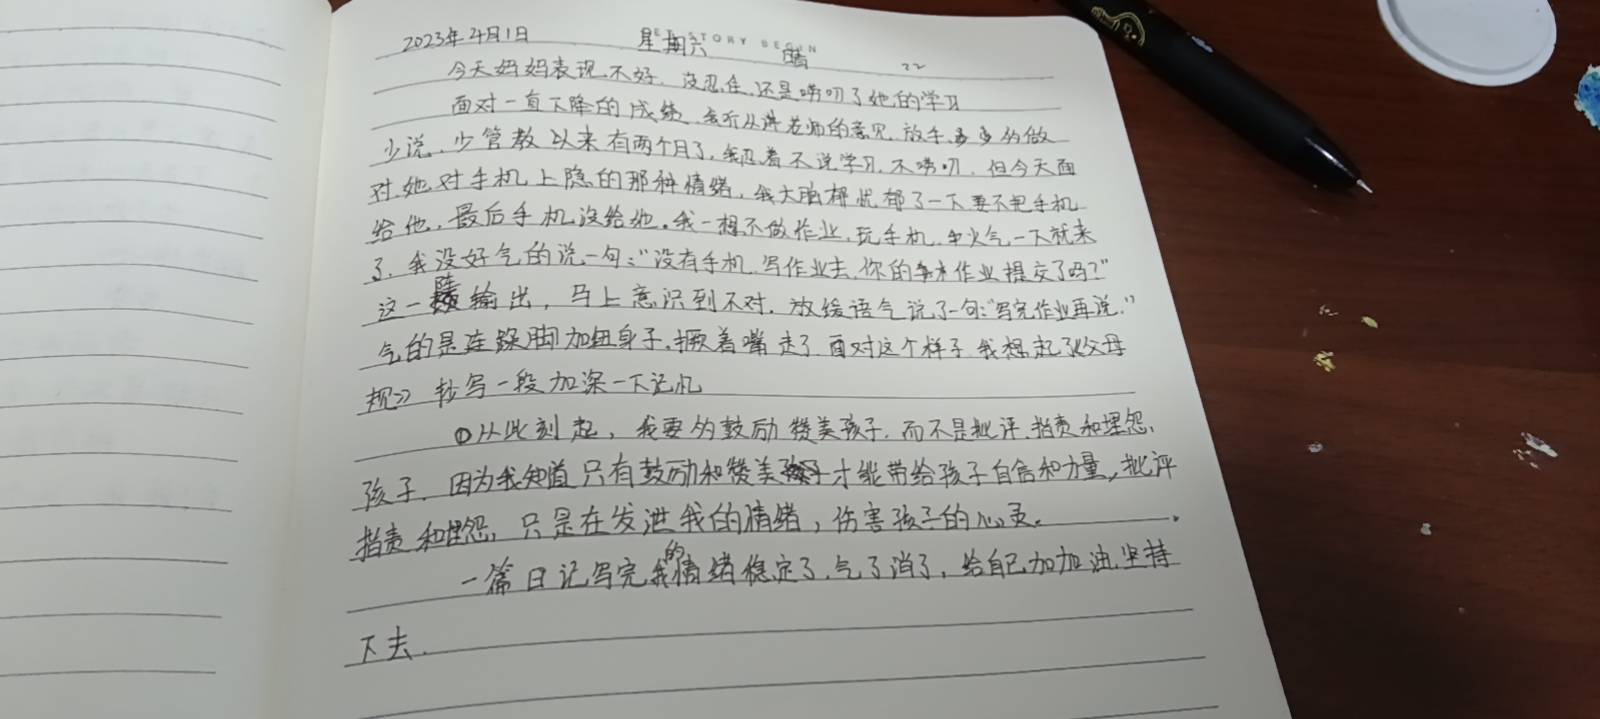 2023年4月1日 星期六 STORY BEGIN 晴 22
今天妈妈表现不好.没忍住.还是唠叨了她的学习
面对一直下降的成绩 听从 老师的意见.放手.多 的做
少说.少管教 以来有两个月了.我忍着不说学习.不唠叨.但今天面
对她对手机上隐的那种情绪.我大脑都忧郁了一下要不把手机
给他.最后手机没给她.我一想不做作业.玩手机. 火气一下就来
了.我没好气的说一句:“没有手机.写作业去.你的 作业提交了吗?”
这一 输出,马上意识到不对.放缓语气说了一句:“写完作业再说.”
气的是连跺脚加纽身子.撅着嘴走了.面对这个样子.我想起了《父母
规》 抄写一段加深一下记忆
①从此刻起,我要的鼓励赞美孩子.而不是批评.指责和埋怨.
孩子.因为我知道只有鼓励和赞美 才能带给孩子自信和力量,批评
指责和埋怨,只是在发泄我的情绪,伤害孩子的心灵.
一篇日记写完我的情绪稳定了.气了消了.给自己加加油.坚持
下去.